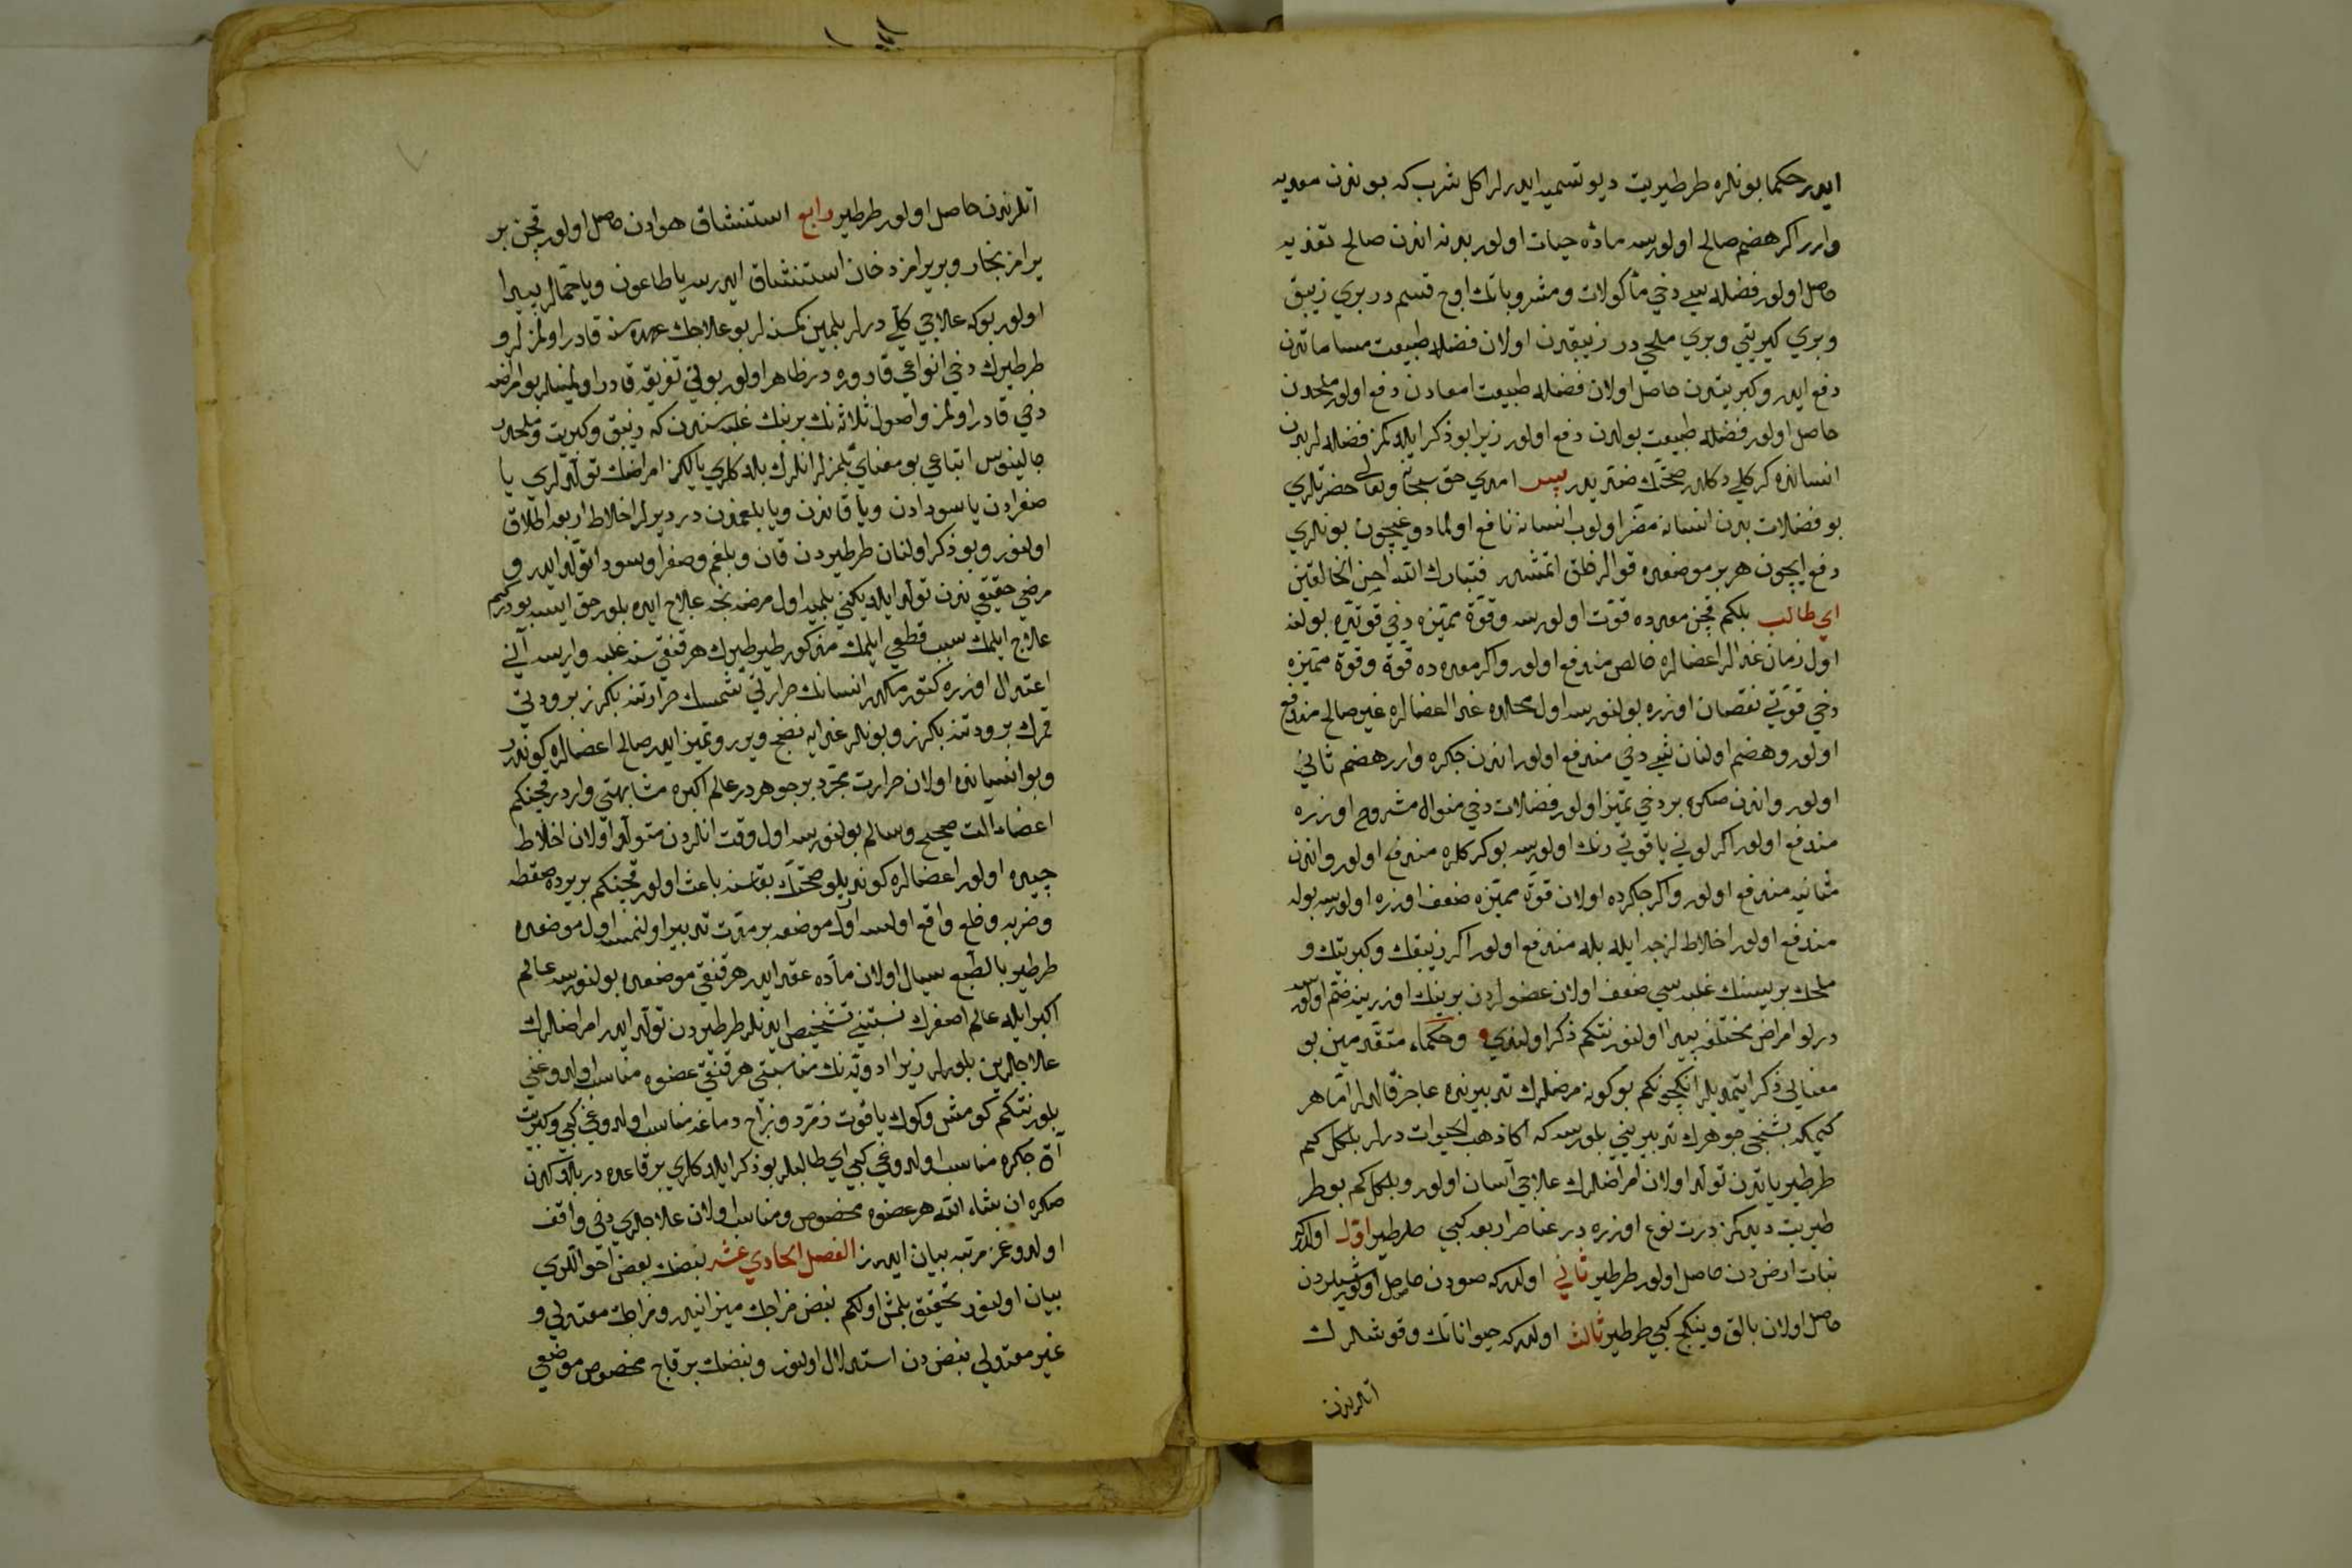 ايدر حكما بونلره طرطيريت ديو تسميه ايدرلر اكل شرب كه بوندن معديه
وارر اكر هضم صالح اولورسه مادّه حيات اولور بدنه اندن صالح تغذيه
حاصل اولور فضله سي دخي مأكولات ومشروباتك اوچ قسم در بري زيبق
وبري كبريتي وبري ملحي در زيبقدن اولان فضله طبيعت مساماتدن
دفع ايدر وكبريتدن حاصل اولان فضله طبيعت امعادن دفع اولور ملحدن
حاصل اولور فضله طبيعت بولدن دفع اولور زيرا بو ذكر ايلدكمز فضله لر بدن
انسانده كركلي دكلدر صحّتك ضدّيدر پس امدي حق سبحانه وتعالى حضرتلري
بو فضلات بدن انسانه مضّر اولوب انسانه نافع اولمادوغيچون بونلري
دفع ايچون هر بر موضعده قوالر خلق اتمشدر فتبارك الله احسن الخالقين
اي طالب بلكم قچن معده ده قوّت اولورسه وقوّة مميّزه دخي قوتيّه بولنه
اول زمان غدالر اعضالره خالص مندفع اولور واكر معده ده قوّة وقوّة مميّزه
دخي قوّتي نقصان اوزره بولنورسه اول محلده غدا اعضالره غير صالح مندفع
اولور وهضم اولنان شي دخي مندفع اولور اندن جكره وارر هضم ثاني
اولور واندن صكره بر دخي تميّز اولور فضلات دخي منوال مشروح اوزره
مندفع اولور اكر لوني ياقوتي رنك اولورسه بوكركلره مندفع اولور واندن
مثانيه مندفع اولور واكر جكرده اولان قوّة مميّزه ضعف اوزره اولورسه بوله
مندفع اولور اخلاط لزجه ايله بله مندفع اولور اكر زيبقك وكبريتك و
ملحك بريسنك غلبه سي ضعف اولان عضولردن برينك اوزرينه ضمّ اولورسه
درلو امراض مختلفه پيدا اولنور نتكم ذكر اولندي و حكماء متقدّمين بو
معنايي ذكر ايتمديلر انكچونكم بو كونه مرضلرك تدبيرنده عاجز قالدلر امّا هر
كيمكه بشنجي جوهرك تدبيريني بلورسه كه اكا ذهب الحيوات درلر بلكل كيم
طرطيرياتدن تولّد اولان امراضلرك علاجي آسان اولور وبلكل كم بو طر
طيريت ديدكمز درت نوع اوزره در عناصر اربعه كبي طرطير اوّل اولدركه
نبات ارضدن حاصل اولور طرطير ثاني اولدركه صودن حاصل اولور شيلردن
حاصل اولان بالق وينكج كبي طرطير ثالث اولدركه حيواناتك وقوشلرك
اتلرندن
اتلرندن حاصل اولور طرطير رابع استنشاق هوادن حاصل اولور قچن بر
يرامز بخار وبر يرامز دخان استنشاق ايدرسه يا طاعون ويا حمّالر پيدا
اولور بوكه علاجي كلّي درلر بلمين كمسنه لر بو علاجك عهده سنه قادر اولمزلر و
طرطيرك دخي انواعي قاروره در ظاهر اولور بولي تفريقه قادر اولمينلر بو امراضه
دخي قادر اولمز واصول ثلاثه نك برينك غلبه سندن كه زيبق وكبريت وملحدر
جالينوس اتباعي بو معنايي بلمزلر انلرك بلدكلري يالكز امراضك تولّدلري يا
صفرادن يا سودادن ويا قاندن ويا بلغمدن در ديرلر اخلاط اربعه اطلاق
اولنور وبو ذكر اولنان طرطيردن قان وبلغم وصفرا وسودا تولّد ايدر و
مرضي حقيقي ندن تولّد ايلديكني بلميه اول مرضه نجه علاج ايده بلور حق ايسه بودركيم
علاج ايلمك سبب قطعي ايلمك مذكور طرطيرك هر قنقيسنه غلبه وارايسه آني
اعتدال اوزره كتورمكدر انسانك حرارتي شمسك حرارتنه بكزر برودتي
قمرك برودتنه بكزر وبونلر غدايه نضج ويرر وتميز ايدر صالح اعضالره كوندرر
وبو انسانده اولان حرارت مجرّد بر جوهردر عالم اكبره مشابهتي واردر قچنكم
اعضاء الت صحيح وسالم بولنورسه اول وقت انلردن متولّد اولان اخلاط
جيّده اولور اعضالره كوندريلور صحّتك بقاسنه باعث اولور قچنكم بر يرده سقطه
وضربه وخلع واقع اولسه اول موضعه بر مدّت تدبير اولنمسه اول موضعده
طرطير بالطبع سيال اولان مادّه عقد ايدر هر قنقي موضعده بولنورسه عالم
اكبر ايله عالم اصغرك نسبتني تشخيص ايدنلر طرطيردن تولّد ايدر امراضلرك
علاجلرين بلورلر زيرا ادويّه نك مناسبتي هر قنقي عضوه مناسب اولدوغني
بلور نتكم كومش وكوك ياقوت زمرّد وزاج دماغه مناسب اولدوغي كبي وكبريت
آة جكره مناسب اولدوغي كبي اي طالبلر بو ذكر ايلدكلري بر قاعده در بلدكدن
صكره ان شاء الله هر عضوه مخصوص ومناسب اولان علاجلري دخي واقف
اولدوغمز مرتبه بيان ايدرز الفصل الحادي عشر نبضك بعض احواللري
بيان اولنور تحقيق بلمش اولكم نبض مزاجك ميزانيدر ومزاجك معتدلي و
غير معتدلي نبض دن استدلال اولنور ونبضك برقاچ مخصوص موضعي